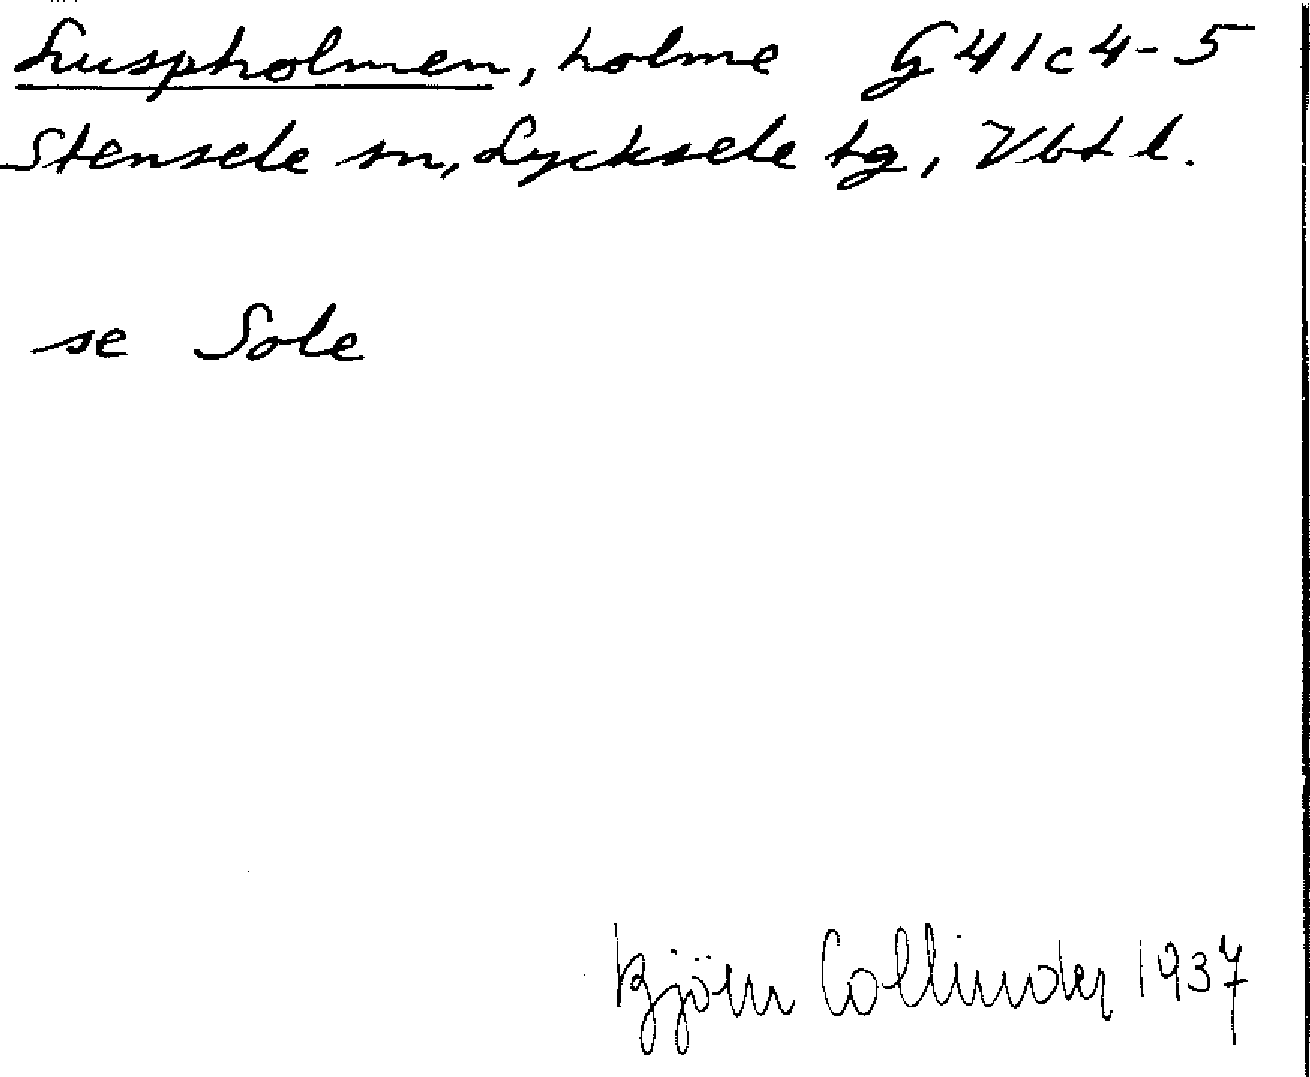 Luspholmen, holme G 41 c 4-5
Stensele sn, Lycksele tg, Vbt l.
se Sole
Björn Collinder 1937